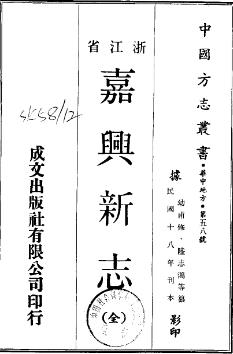 中國方志叢書・華中地方・第五八號
據
民國十八年刊本
影印
浙江省
嘉興新志
(全)
成文出版社有限公司印行